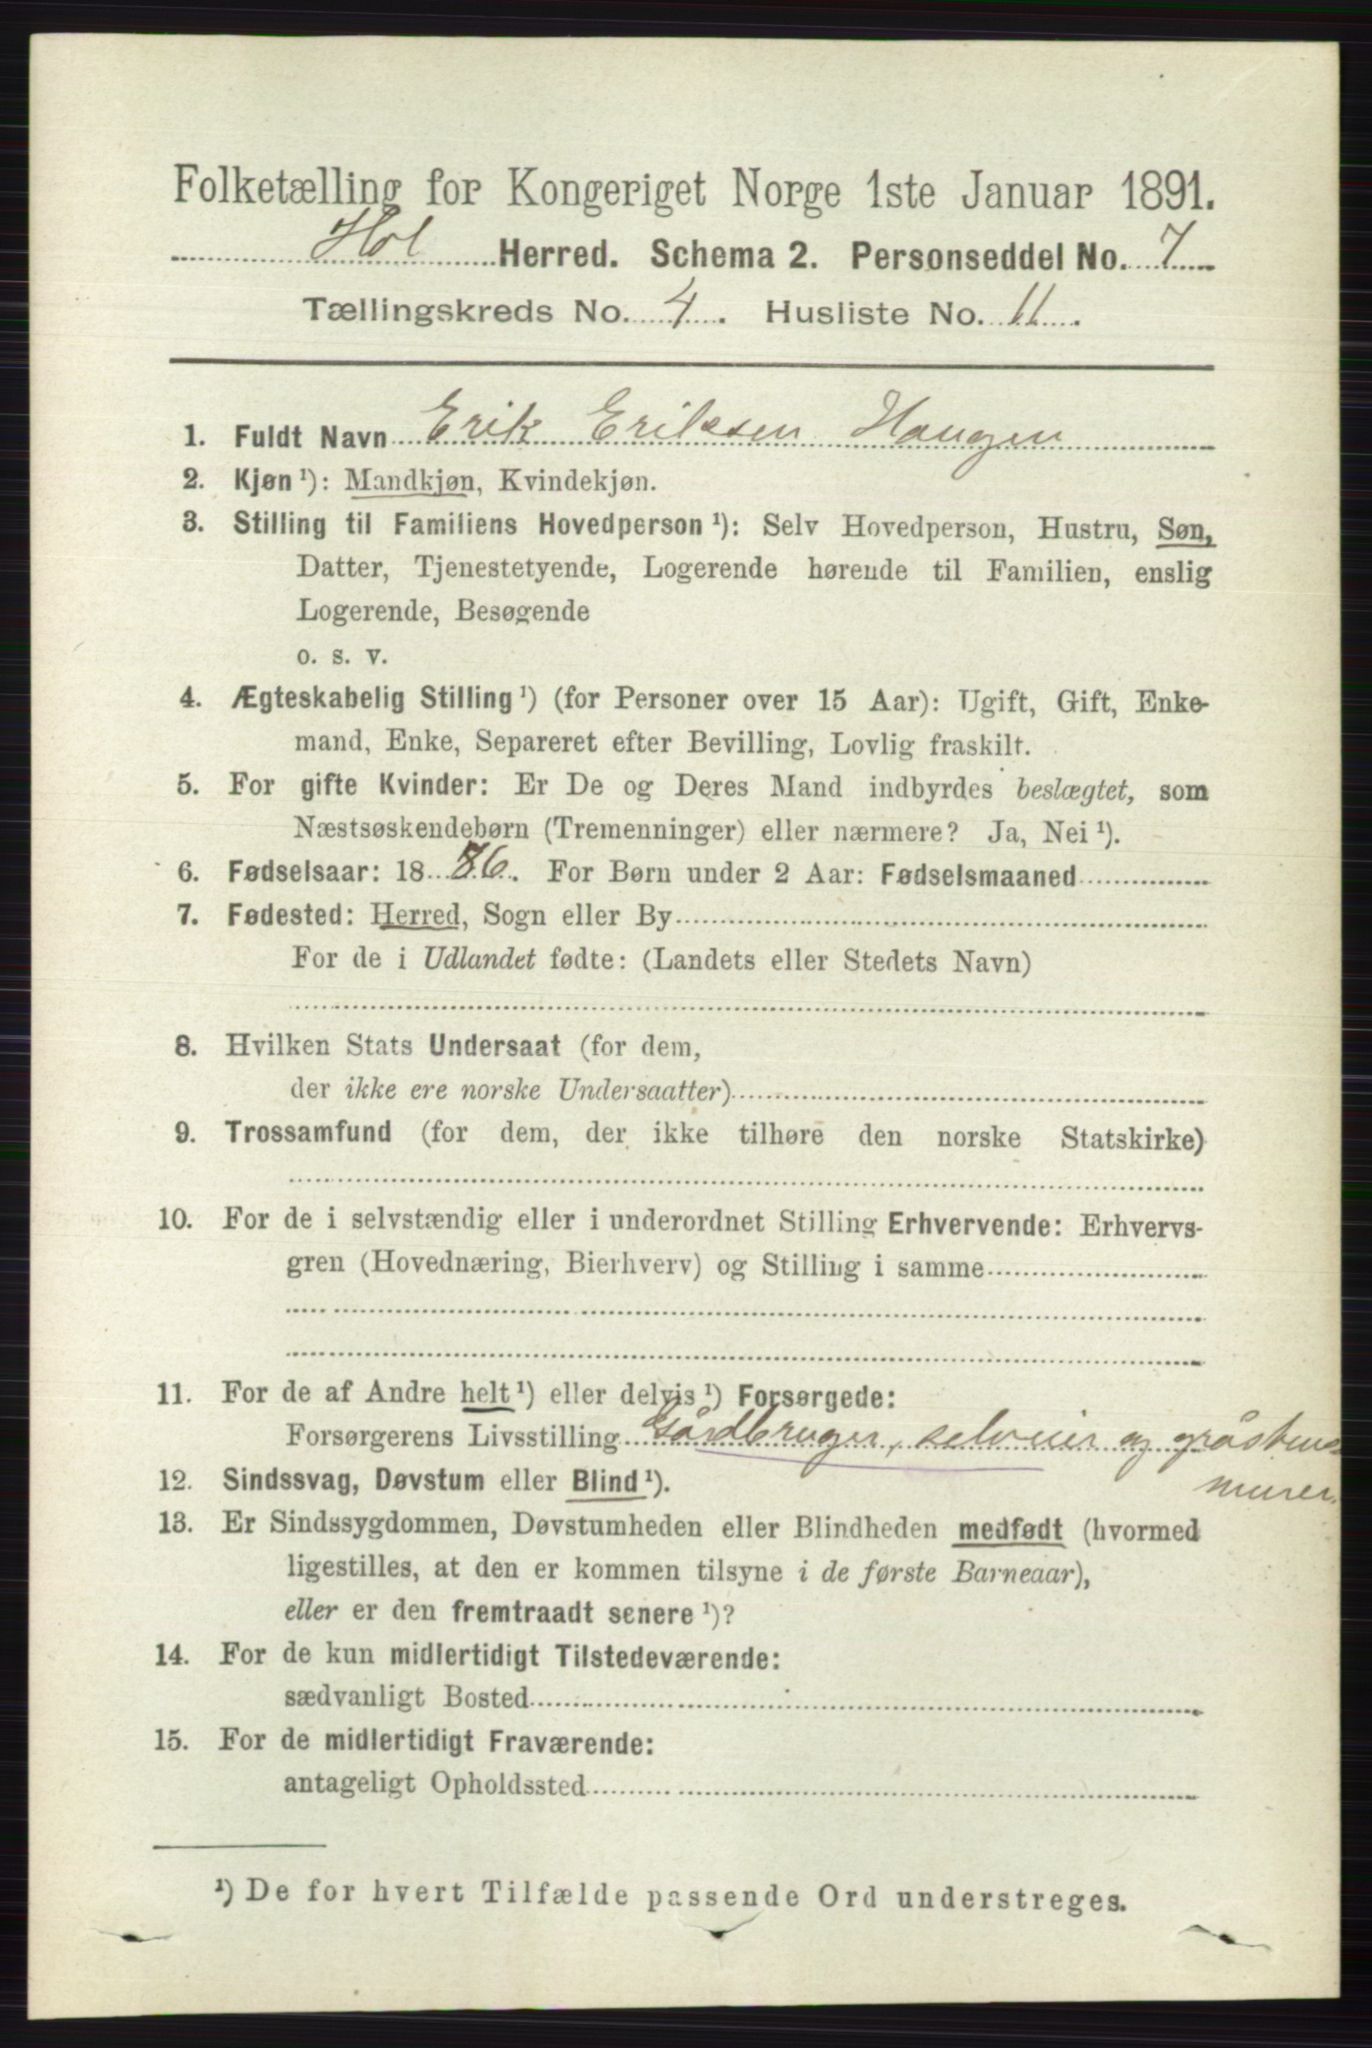 Folketælling for Kongeriget Norge 1ste Januar 1891.
Hol Herred. Schema 2. Personseddel No. 7
Tællingskreds No. 4. Husliste No. 11.
1. Fuldt Navn Erik Eriksen Haugen
2. Kjøn ¹): Mandkjøn, Kvindekjøn.
3. Stilling til Familiens Hovedperson ¹): Selv Hovedperson, Hustru, Søn,
Datter, Tjenestetyende, Logerende hørende til Familien, enslig
Logerende, Besøgende
o. s. v.
4. Ægteskabelig Stilling ¹) (for Personer over 15 Aar): Ugift, Gift, Enke-
mand, Enke, Separeret efter Bevilling, Lovlig fraskilt.
5. For gifte Kvinder: Er De og Deres Mand indbyrdes beslægtet, som
Næstsøskendebørn (Tremenninger) eller nærmere? Ja, Nei ¹).
6. Fødselsaar: 18 86. For Børn under 2 Aar: Fødselsmaaned
7. Fødested: Herred, Sogn eller By
For de i Udlandet fødte: (Landets eller Stedets Navn)
8. Hvilken Stats Undersaat (for dem,
der ikke ere norske Undersaatter)
9. Trossamfund (for dem, der ikke tilhøre den norske Statskirke)
10. For de i selvstændig eller i underordnet Stilling Erhvervende: Erhvervs-
gren (Hovednæring, Bierhverv) og Stilling i samme
11. For de af Andre helt ¹) eller delvis ¹) Forsørgede:
Forsørgerens Livsstilling Gårdbruger, selveier og gråstens
murer.
12. Sindssvag, Døvstum eller Blind ¹).
13. Er Sindssygdommen, Døvstumheden eller Blindheden medfødt (hvormed
ligestilles, at den er kommen tilsyne i de første Barneaar),
eller er den fremtraadt senere ¹)?
14. For de kun midlertidigt Tilstedeværende:
sædvanligt Bosted
15. For de midlertidigt Fraværende:
antageligt Opholdssted
¹) De for hvert Tilfælde passende Ord understreges.